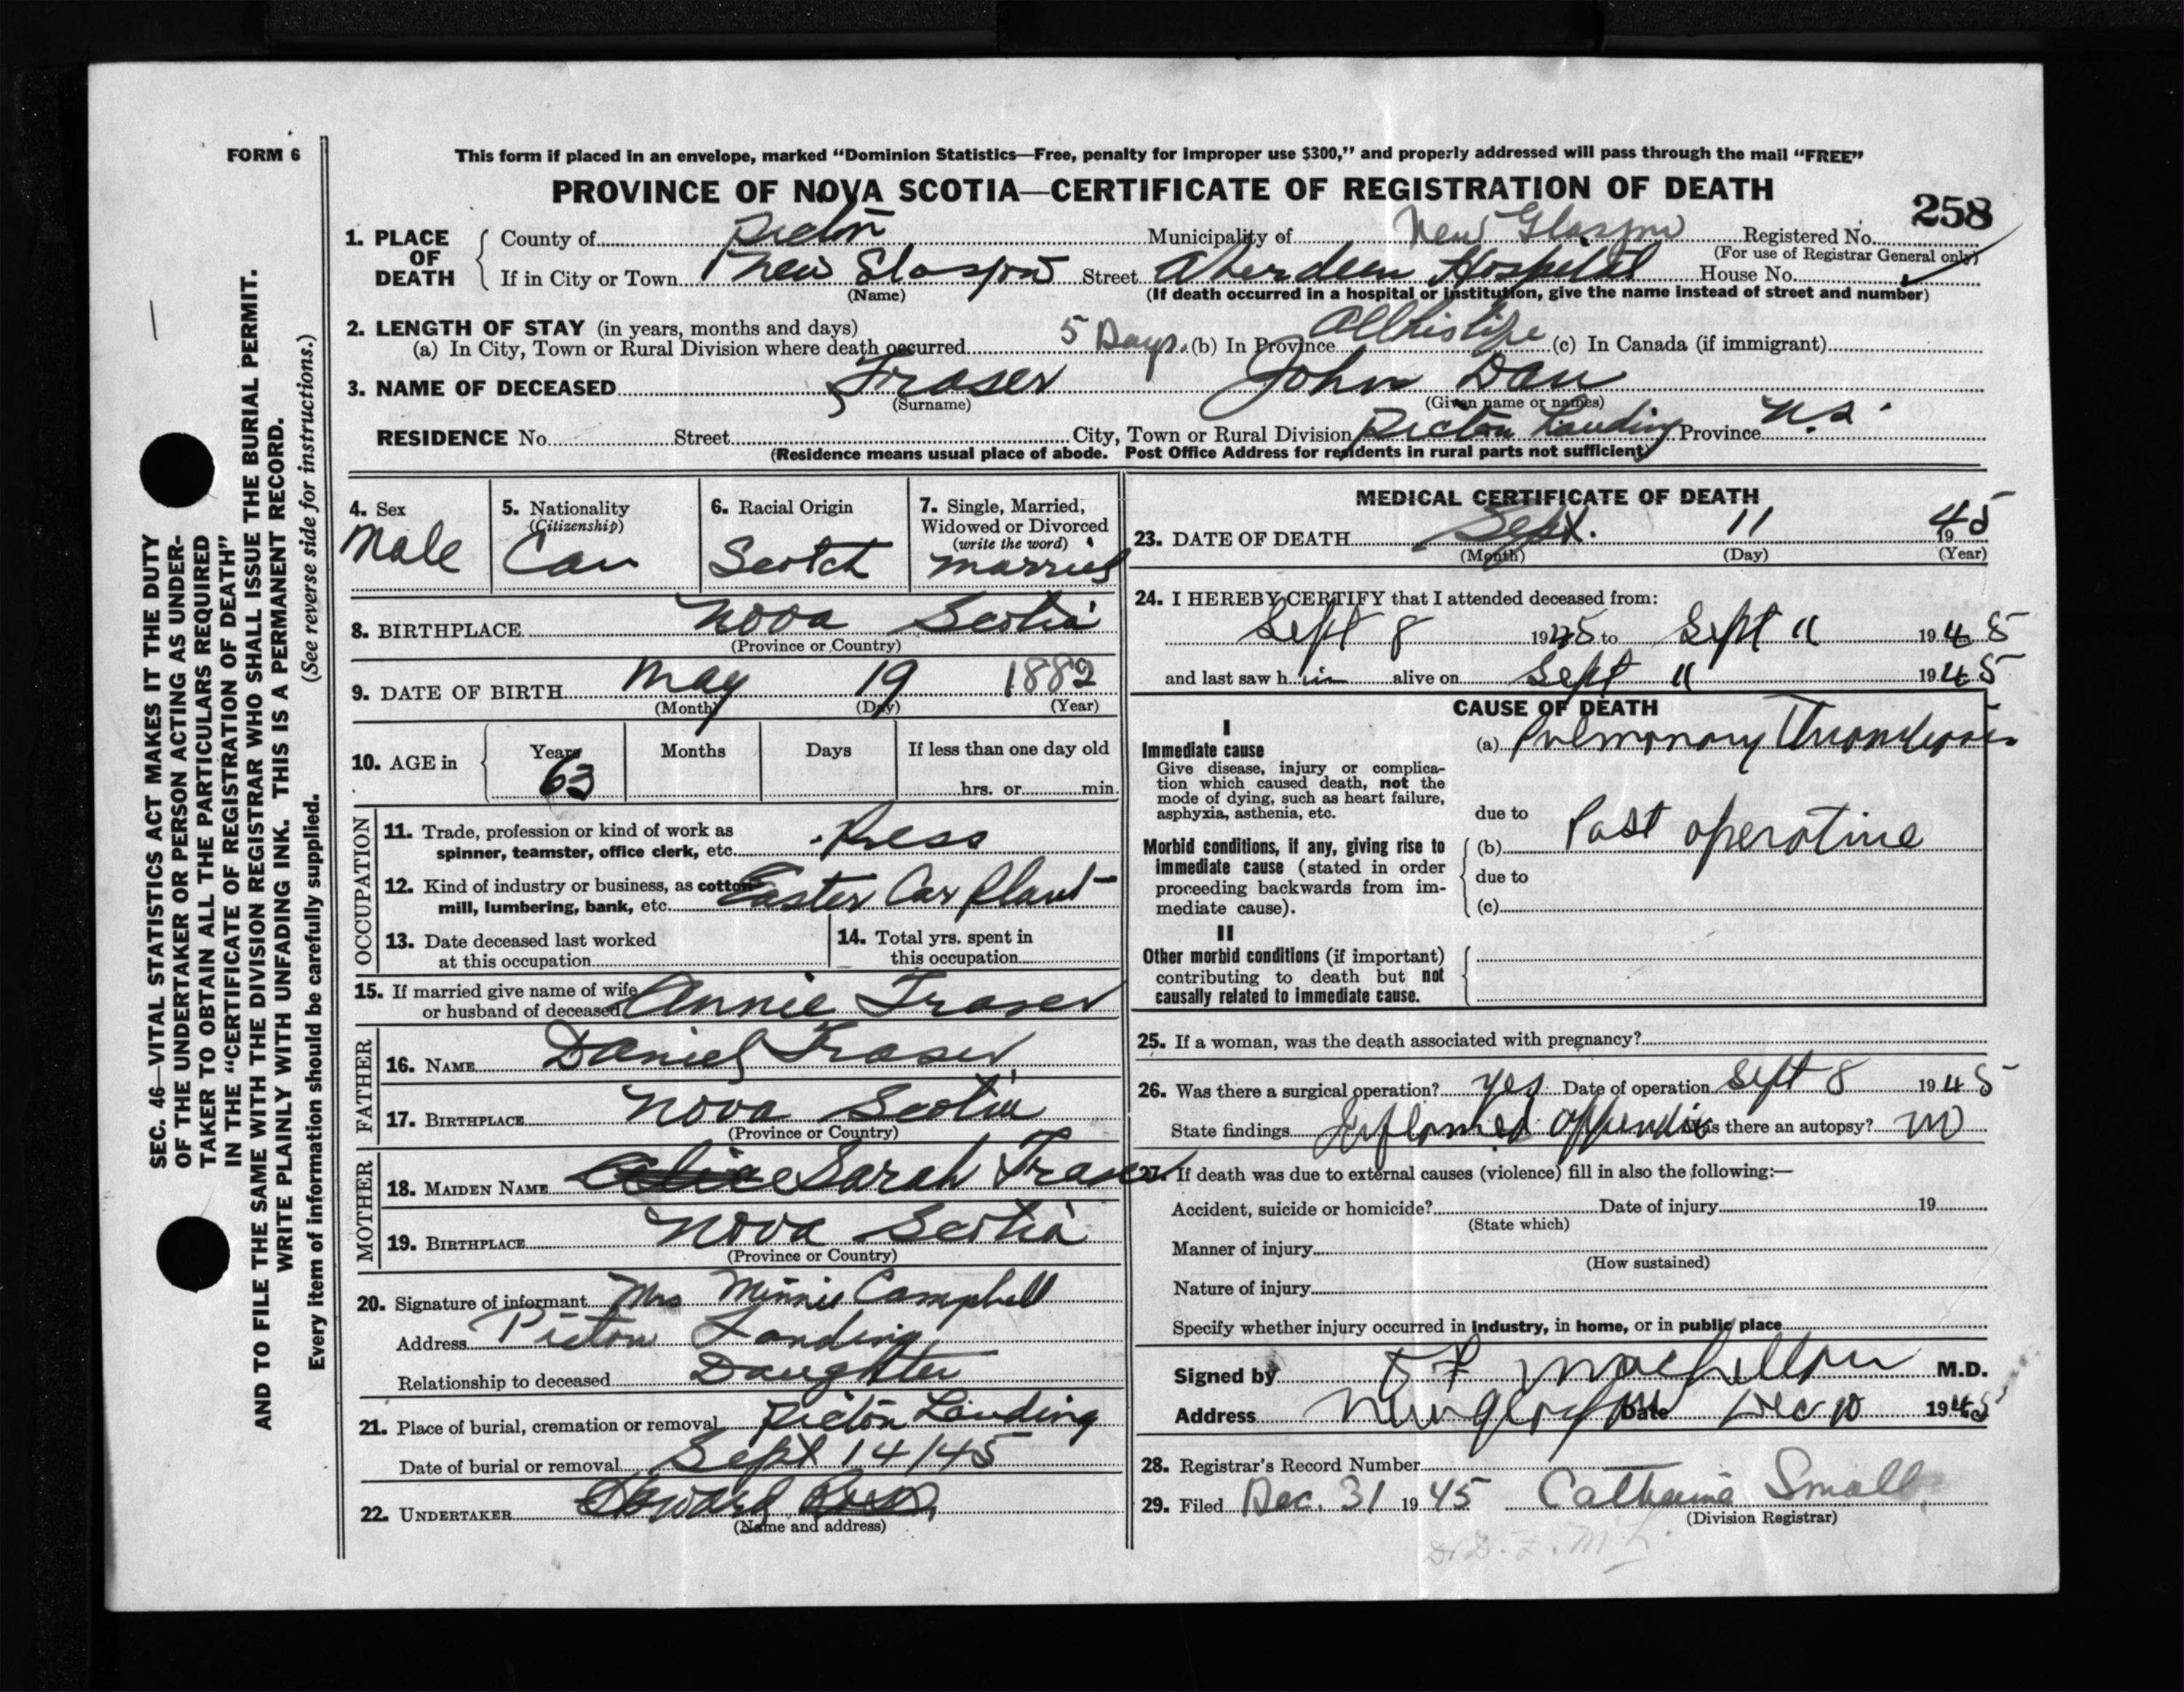 FORM 6
This form if placed in an envelope, marked “Dominion Statistics—Free, penalty for improper use $300,” and properly addressed will pass through the mail “FREE”
PROVINCE OF NOVA SCOTIA—CERTIFICATE OF REGISTRATION OF DEATH
258
1. PLACE OF DEATH
County of Pictou Municipality of New Glasgow Registered No.
(For use of Registrar General only)
If in City or Town New Glasgow Street Aberdeen Hospital House No.
(Name) (If death occurred in a hospital or institution, give the name instead of street and number)
2. LENGTH OF STAY (in years, months and days)
(a) In City, Town or Rural Division where death occurred 5 Days. (b) In Province All his life (c) In Canada (if immigrant)
3. NAME OF DECEASED Fraser John Dan
(Surname) (Given name or names)
RESIDENCE No. Street City, Town or Rural Division Pictou Landing Province N.S.
(Residence means usual place of abode. Post Office Address for residents in rural parts not sufficient)
4. Sex
Male
5. Nationality
(Citizenship)
Can
6. Racial Origin
Scotch
7. Single, Married,
Widowed or Divorced
(write the word)
Married
8. BIRTHPLACE Nova Scotia
(Province or Country)
9. DATE OF BIRTH May 19 1882
(Month) (Day) (Year)
10. AGE in
Years Months Days If less than one day old
63 hrs. or min.
OCCUPATION
11. Trade, profession or kind of work as
spinner, teamster, office clerk, etc. Press
12. Kind of industry or business, as cotton
mill, lumbering, bank, etc. Easter Car Plant
13. Date deceased last worked
at this occupation
14. Total yrs. spent in
this occupation
15. If married give name of wife
or husband of deceased Annie Fraser
FATHER
16. NAME Daniel Fraser
17. BIRTHPLACE Nova Scotia
(Province or Country)
MOTHER
18. MAIDEN NAME Sarah Fraser
19. BIRTHPLACE Nova Scotia
(Province or Country)
20. Signature of informant Mrs Minnie Campbell
Address Pictou Landing
Relationship to deceased Daughter
21. Place of burial, cremation or removal Pictou Landing
Date of burial or removal Sept 14/45
22. UNDERTAKER Howard
(Name and address)
MEDICAL CERTIFICATE OF DEATH
23. DATE OF DEATH Sept. 11 1945
(Month) (Day) (Year)
24. I HEREBY CERTIFY that I attended deceased from:
Sept 8 1945 to Sept 11 1945
and last saw h im alive on Sept 11 1945
CAUSE OF DEATH
I
Immediate cause
Give disease, injury or complica-
tion which caused death, not the
mode of dying, such as heart failure,
asphyxia, asthenia, etc.
(a) Pulmonary Thrombosis
due to
Morbid conditions, if any, giving rise to
immediate cause (stated in order
proceeding backwards from im-
mediate cause).
(b) Post operative
due to
(c)
II
Other morbid conditions (if important)
contributing to death but not
causally related to immediate cause.
25. If a woman, was the death associated with pregnancy?
26. Was there a surgical operation? Yes Date of operation Sept 8 1945
State findings Inflamed appendix Was there an autopsy? no
27. If death was due to external causes (violence) fill in also the following:—
Accident, suicide or homicide? Date of injury 19
(State which)
Manner of injury
(How sustained)
Nature of injury
Specify whether injury occurred in industry, in home, or in public place
Signed by MacLellan M.D.
Address New Glasgow Date Dec 10 1945
28. Registrar's Record Number
29. Filed Dec. 31 1945 Catherine Small
(Division Registrar)
SEC. 46—VITAL STATISTICS ACT MAKES IT THE DUTY
OF THE UNDERTAKER OR PERSON ACTING AS UNDER-
TAKER TO OBTAIN ALL THE PARTICULARS REQUIRED
IN THE “CERTIFICATE OF REGISTRATION OF DEATH”
AND TO FILE THE SAME WITH THE DIVISION REGISTRAR WHO SHALL ISSUE THE BURIAL PERMIT.
WRITE PLAINLY WITH UNFADING INK. THIS IS A PERMANENT RECORD.
Every item of information should be carefully supplied. (See reverse side for instructions.)